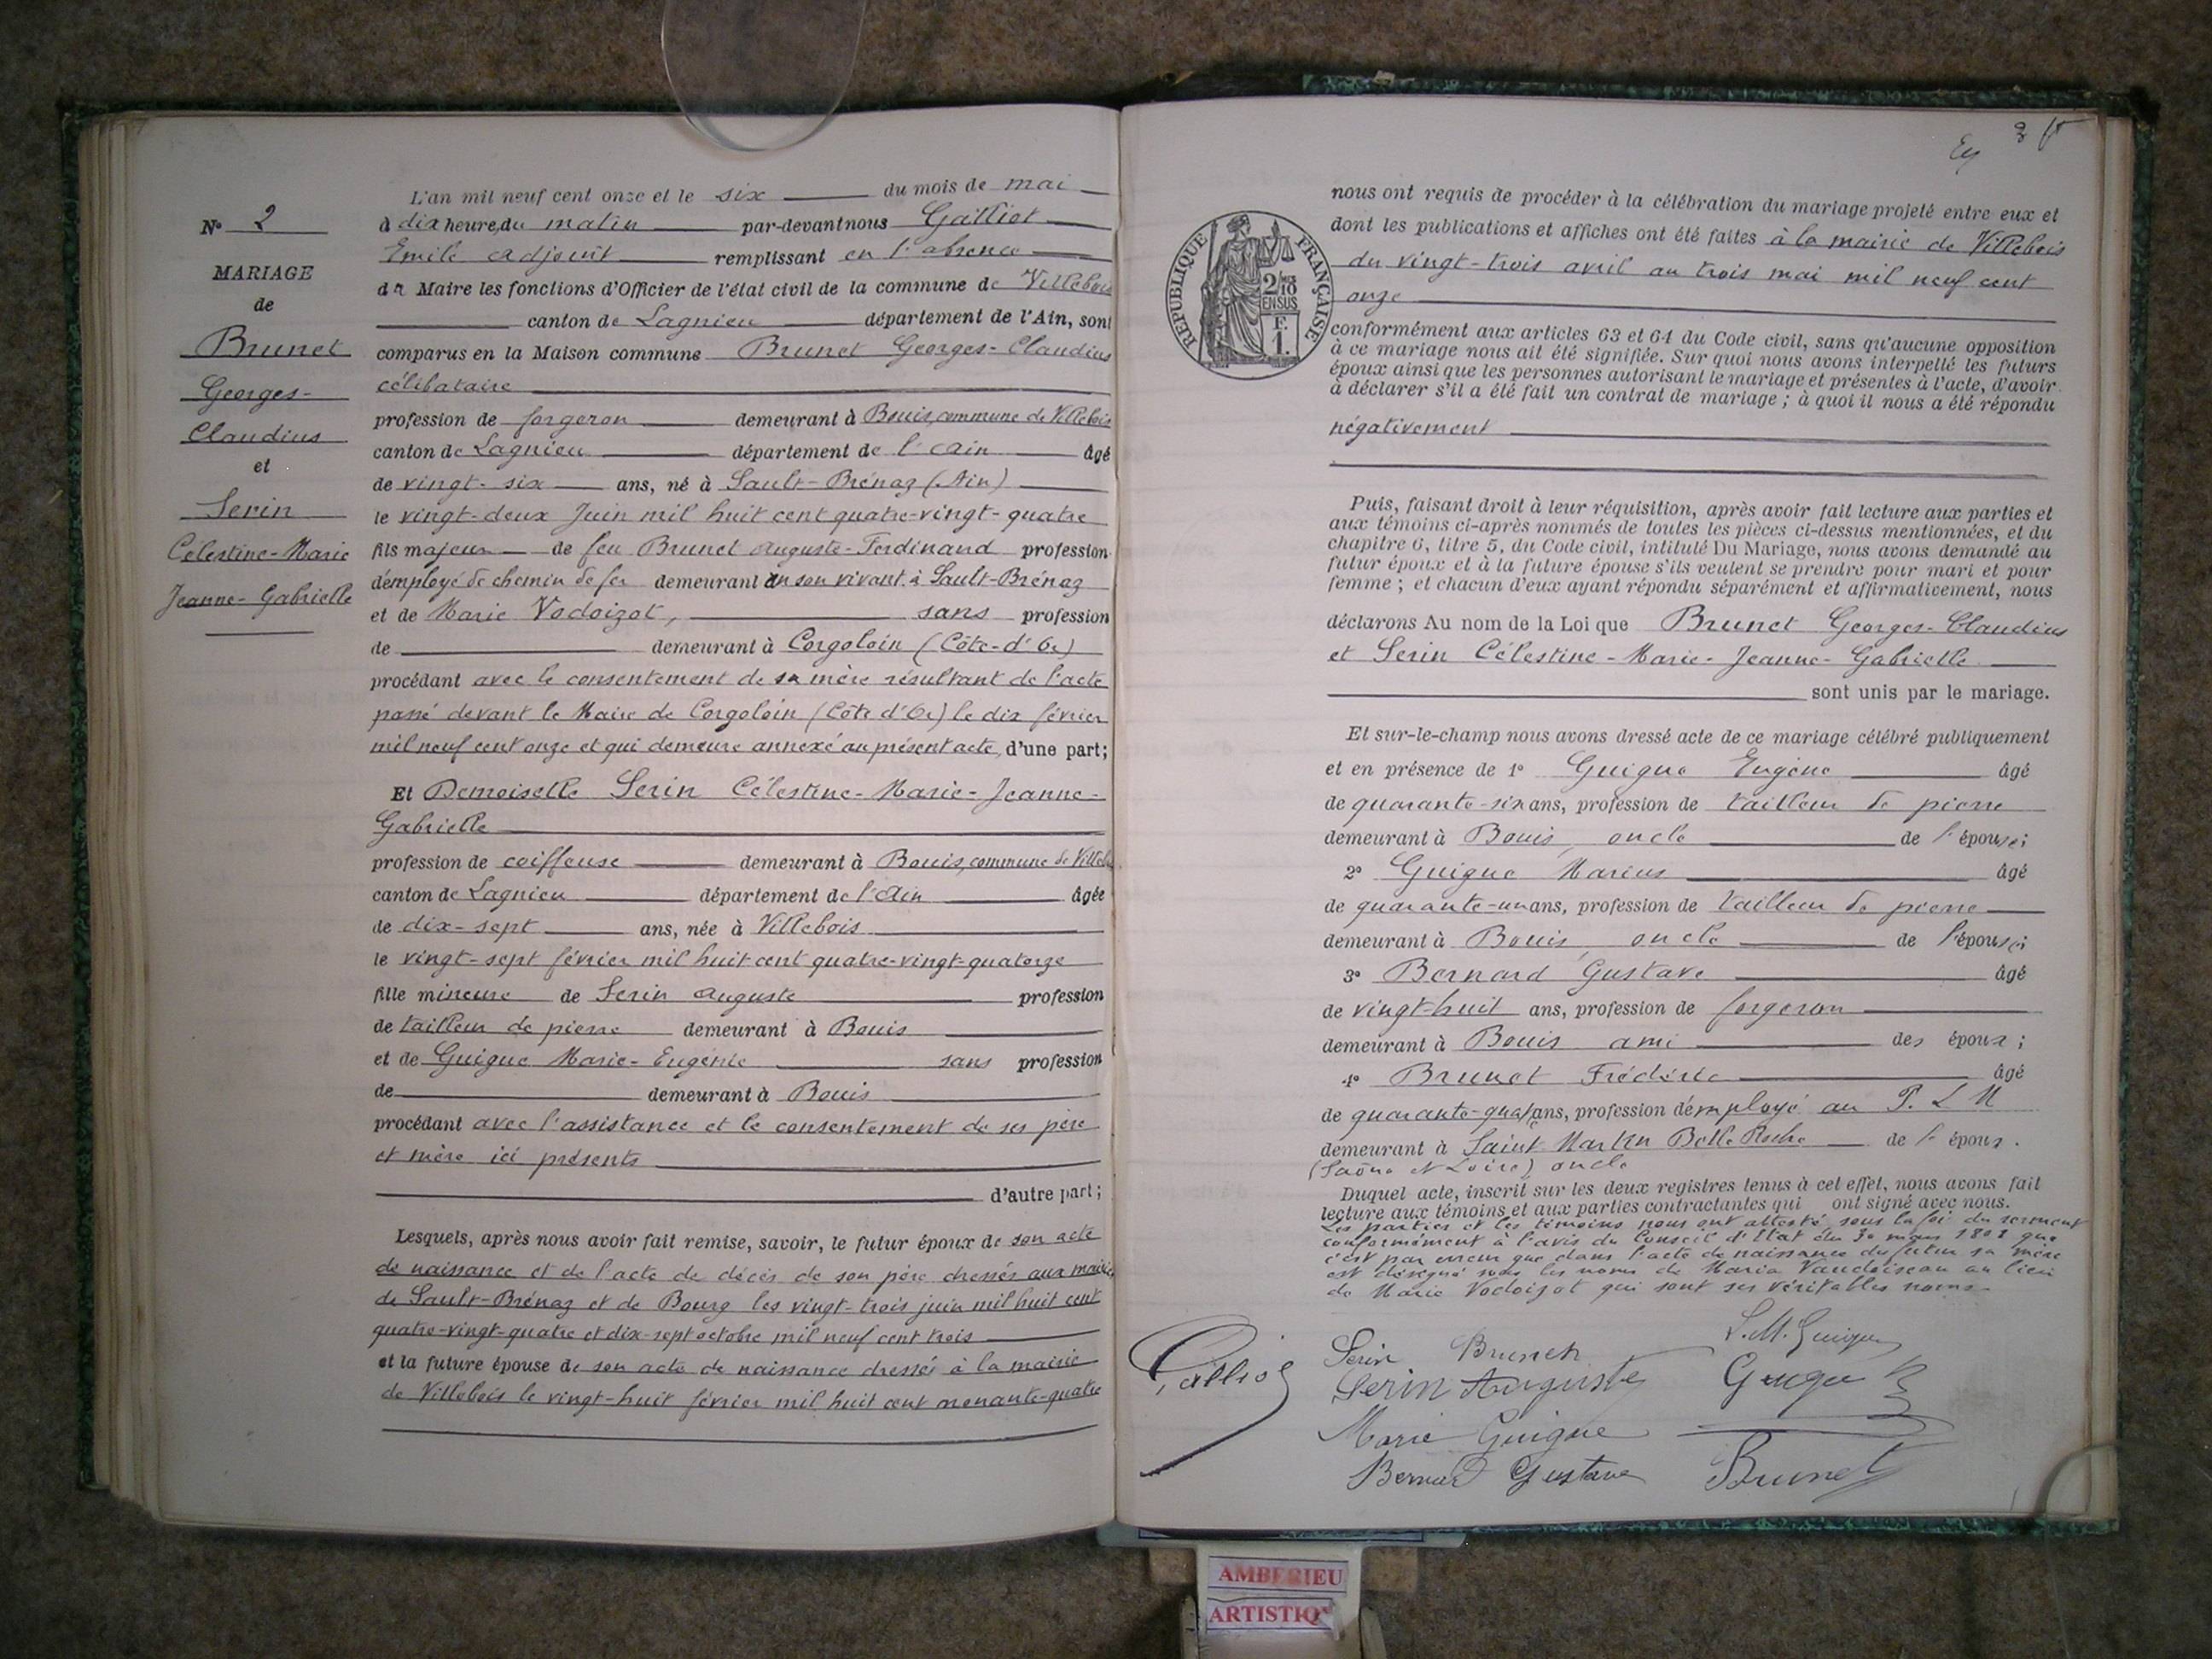 N° 2
MARIAGE
de
Brunet
Georges-
Claudius
et
Serin
Célestine-Marie
Jeanne-Gabrielle
L'an mil neuf cent onze et le six du mois de mai
à dix heures du matin par-devant nous Galliot
Emile adjoint remplissant en l'absence
du Maire les fonctions d'Officier de l'état civil de la commune de Villebois
canton de Lagnieu département de l'Ain, sont
comparus en la Maison commune Brunet Georges-Claudius
célibataire
profession de forgeron demeurant à Bouis, commune de Villebois
canton de Lagnieu département de l'Ain âgé
de vingt-six ans, né à Sault-Brénaz (Ain)
le vingt-deux Juin mil huit cent quatre-vingt-quatre
fils majeur de feu Brunet Auguste-Ferdinand profession
d'employé de chemin de fer demeurant en son vivant à Sault-Brénaz
et de Marie Vodoizot, sans profession
de demeurant à Corgoloin (Côte-d'Or)
procédant avec le consentement de sa mère résultant de l'acte
passé devant le Maire de Corgoloin (Côte d'Or) le dix février
mil neuf cent onze et qui demeure annexé au présent acte, d'une part;
Et Demoiselle Serin Célestine-Marie-Jeanne-
Gabrielle
profession de coiffeuse demeurant à Bouis, commune de Villebois
canton de Lagnieu département de l'Ain âgée
de dix-sept ans, née à Villebois
le vingt-sept février mil huit cent quatre-vingt-quatorze
fille mineure de Serin Auguste profession
de tailleur de pierre demeurant à Bouis
et de Guigue Marie-Eugénie sans profession
de demeurant à Bouis
procédant avec l'assistance et le consentement de ses père
et mère ici présents
d'autre part;
Lesquels, après nous avoir fait remise, savoir, le futur époux de son acte
de naissance et de l'acte de décès de son père dressés aux mairies
de Sault-Brénaz et de Bourg les vingt-trois juin mil huit cent
quatre-vingt-quatre et dix-sept octobre mil neuf cent trois
et la future épouse de son acte de naissance dressés à la mairie
de Villebois le vingt-huit février mil huit cent nonante-quatre
3
RÉPUBLIQUE FRANÇAISE
2/10 EN SUS
F.
1.
nous ont requis de procéder à la célébration du mariage projeté entre eux et
dont les publications et affiches ont été faites à la mairie de Villebois
du vingt-trois avril au trois mai mil neuf cent
onze
conformément aux articles 63 et 64 du Code civil, sans qu'aucune opposition
à ce mariage nous ait été signifiée. Sur quoi nous avons interpellé les futurs
époux ainsi que les personnes autorisant le mariage et présentes à l'acte, d'avoir
à déclarer s'il a été fait un contrat de mariage; à quoi il nous a été répondu
négativement
Puis, faisant droit à leur réquisition, après avoir fait lecture aux parties et
aux témoins ci-après nommés de toutes les pièces ci-dessus mentionnées, et du
chapitre 6, titre 5, du Code civil, intitulé Du Mariage, nous avons demandé au
futur époux et à la future épouse s'ils veulent se prendre pour mari et pour
femme; et chacun d'eux ayant répondu séparément et affirmativement, nous
déclarons Au nom de la Loi que Brunet Georges-Claudius
et Serin Célestine-Marie-Jeanne-Gabrielle
sont unis par le mariage.
Et sur-le-champ nous avons dressé acte de ce mariage célébré publiquement
et en présence de 1° Guigue Eugène âgé
de quarante-six ans, profession de tailleur de pierre
demeurant à Bouis, oncle de l'épouse;
2° Guigue Marius âgé
de quarante-un ans, profession de tailleur de pierre
demeurant à Bouis, oncle de l'épouse;
3° Bernard Gustave âgé
de vingt-huit ans, profession de forgeron
demeurant à Bouis ami des époux;
4° Brunet Frédéric âgé
de quarante-quatre ans, profession d'employé au P. L M
demeurant à Saint Martin Belle Roche de l'époux.
(Saône et Loire) oncle
Duquel acte, inscrit sur les deux registres tenus à cet effet, nous avons fait
lecture aux témoins et aux parties contractantes qui ont signé avec nous.
Les parties et les témoins nous ont attesté sous la foi du serment
conformément à l'avis du Conseil d'Etat du 30 mars 1808 que
c'est par erreur que dans l'acte de naissance du futur sa mère
est désigné sous les noms de Maria Vaudoiseau au lieu
de Marie Vodoizot qui sont ses véritables noms.
Galliot
Serin Brunet L. M. Guigue
Serin Auguste Guigue
Marie Guigue
Bernard Gustave Brunet
AMBERIEU
ARTISTIQ